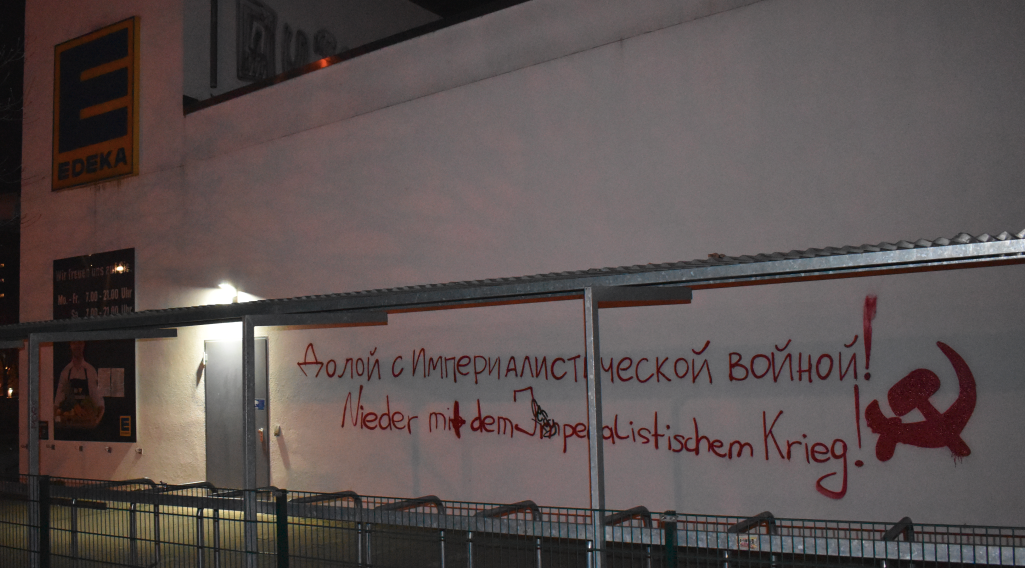 EDEKA
Wir freuen uns
Mo.-Fr. 7.00-21.00 Uhr
Sa. 7.00-21.00 Uhr
Долой с Империалистической войной!
Nieder mit dem Imperialistischem Krieg!